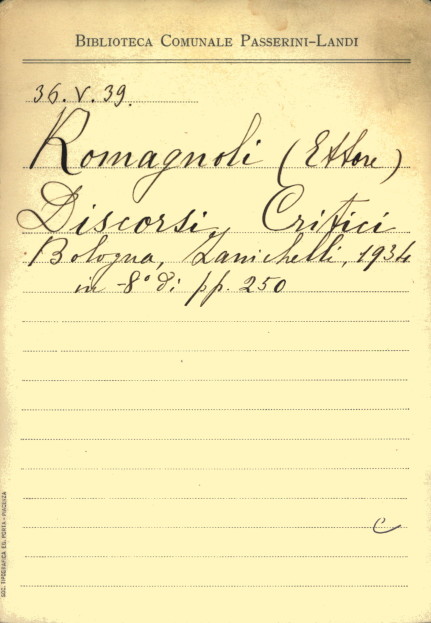 BIBLIOTECA COMUNALE PASSERINI-LANDI
36.V.39.
Romagnoli (Ettore)
Discorsi Critici
Bologna, Zanichelli, 1934
in -8° di pp. 250
C
SOC. TIPOGRAFICA ED. PORTA - PIACENZA